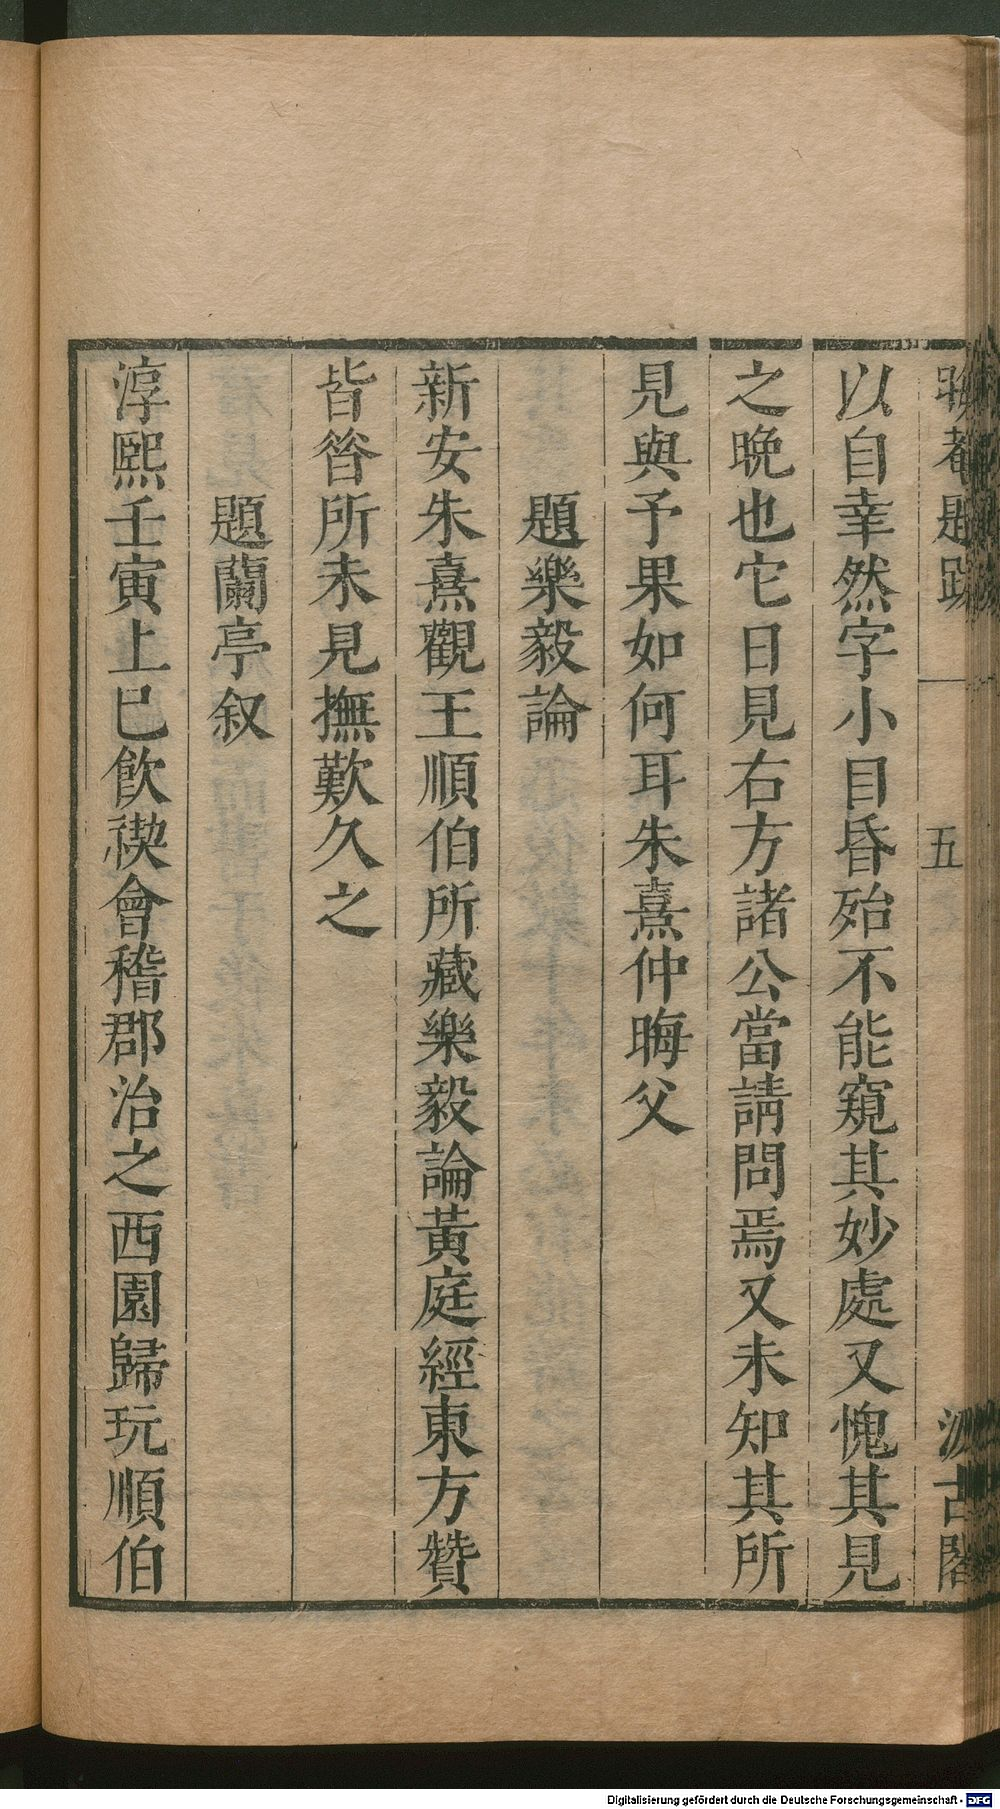 晦菴題跋 五 汲古閣
以自幸然字小目昏殆不能窺其妙處又愧其見
之晩也它日見右方諸公當請問焉又未知其所
見與予果如何耳朱熹仲晦父
題樂毅論
新安朱熹觀王順伯所藏樂毅論黃庭經東方贊
皆昝所未見撫歎久之
題蘭亭叙
淳熙壬寅上巳飲禊會稽郡治之西園歸玩順伯
Digitalisierung gefördert durch die Deutsche Forschungsgemeinschaft - DFG